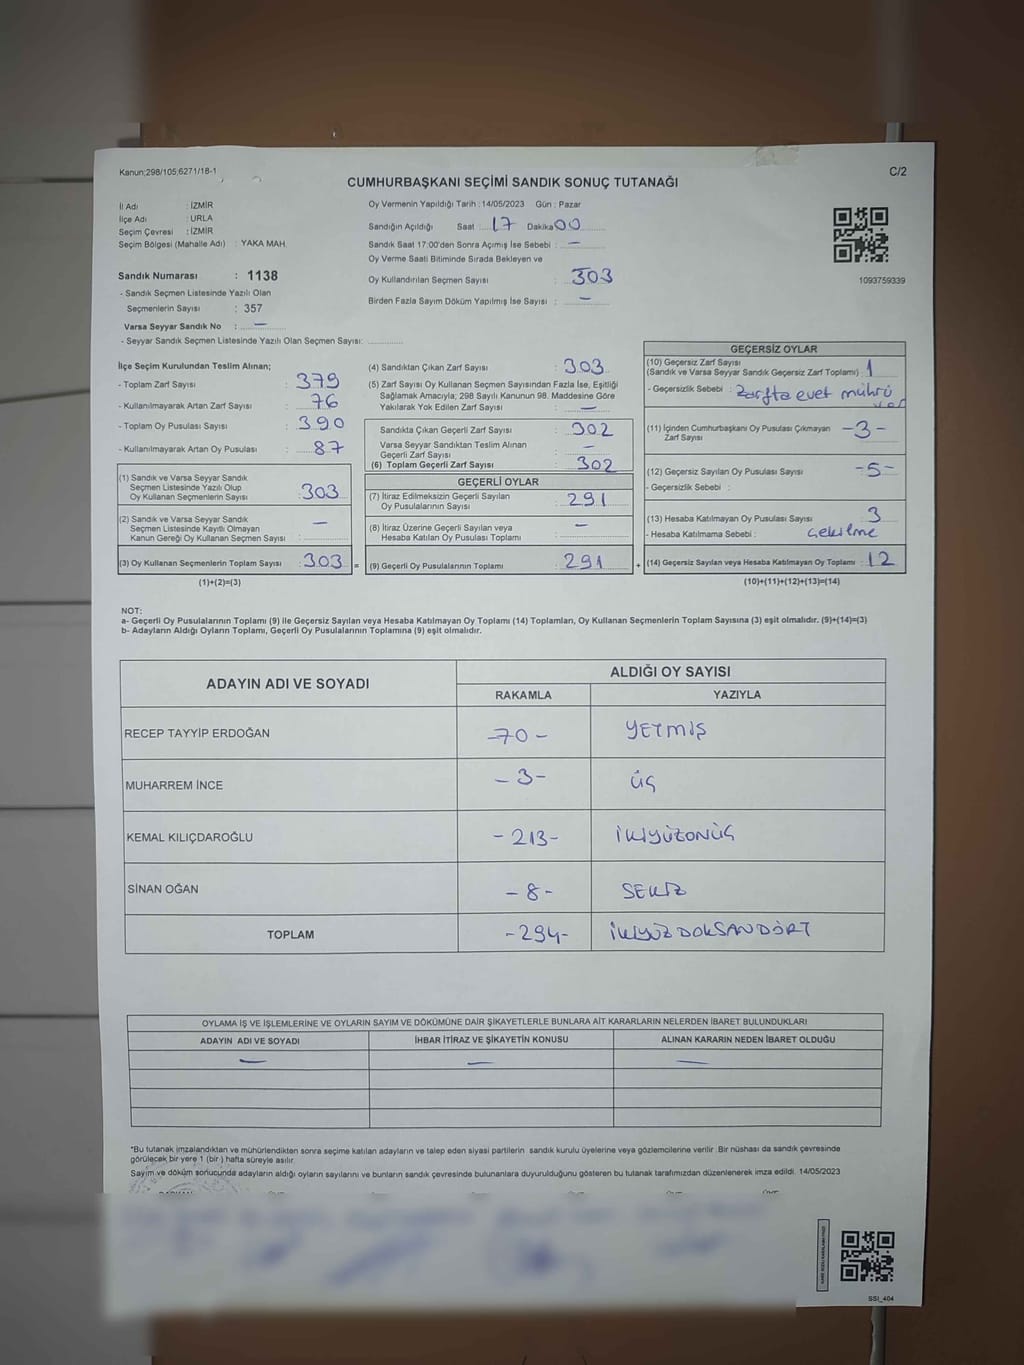 Kanun;298/105;6271/18-1
C/2
CUMHURBAŞKANI SEÇİMİ SANDIK SONUÇ TUTANAĞI
İl Adı : İZMİR
İlçe Adı : URLA
Seçim Çevresi : İZMİR
Seçim Bölgesi (Mahalle Adı) : YAKA MAH.
Sandık Numarası : 1138
- Sandık Seçmen Listesinde Yazılı Olan
Seçmenlerin Sayısı : 357
Varsa Seyyar Sandık No : —
- Seyyar Sandık Seçmen Listesinde Yazılı Olan Seçmen Sayısı:
Oy Vermenin Yapıldığı Tarih : 14/05/2023 Gün : Pazar
Sandığın Açıldığı Saat : 17 Dakika 00
Sandık Saat 17:00'den Sonra Açımış İse Sebebi : —
Oy Verme Saati Bitiminde Sırada Bekleyen ve
Oy Kullandırılan Seçmen Sayısı : 303
Birden Fazla Sayım Döküm Yapılmış İse Sayısı : —
1093759339
İlçe Seçim Kurulundan Teslim Alınan;
- Toplam Zarf Sayısı : 379
- Kullanılmayarak Artan Zarf Sayısı : 76
- Toplam Oy Pusulası Sayısı : 390
- Kullanılmayarak Artan Oy Pusulası : 87
(1) Sandık ve Varsa Seyyar Sandık
Seçmen Listesinde Yazılı Olup
Oy Kullanan Seçmenlerin Sayısı : 303
(2) Sandık ve Varsa Seyyar Sandık
Seçmen Listesinde Kayıtlı Olmayan
Kanun Gereği Oy Kullanan Seçmen Sayısı : —
(3) Oy Kullanan Seçmenlerin Toplam Sayısı : 303 =
(1)+(2)=(3)
(4) Sandıktan Çıkan Zarf Sayısı : 303
(5) Zarf Sayısı Oy Kullanan Seçmen Sayısından Fazla İse, Eşitliği
Sağlamak Amacıyla; 298 Sayılı Kanunun 98. Maddesine Göre
Yakılarak Yok Edilen Zarf Sayısı : —
Sandıkta Çıkan Geçerli Zarf Sayısı : 302
Varsa Seyyar Sandıktan Teslim Alınan
Geçerli Zarf Sayısı : —
(6) Toplam Geçerli Zarf Sayısı : 302
GEÇERLİ OYLAR
(7) İtiraz Edilmeksizin Geçerli Sayılan
Oy Pusulalarının Sayısı : 291
(8) İtiraz Üzerine Geçerli Sayılan veya
Hesaba Katılan Oy Pusulası Toplamı : —
(9) Geçerli Oy Pusulalarının Toplamı : 291 +
GEÇERSİZ OYLAR
(10) Geçersiz Zarf Sayısı
(Sandık ve Varsa Seyyar Sandık Geçersiz Zarf Toplamı) : 1
- Geçersizlik Sebebi : Zarfta evet mührü
var
(11) İçinden Cumhurbaşkanı Oy Pusulası Çıkmayan
Zarf Sayısı : -3-
(12) Geçersiz Sayılan Oy Pusulası Sayısı : -5-
- Geçersizlik Sebebi :
(13) Hesaba Katılmayan Oy Pusulası Sayısı : 3
- Hesaba Katılmama Sebebi : Çekilme
(14) Geçersiz Sayılan veya Hesaba Katılmayan Oy Toplamı : 12
(10)+(11)+(12)+(13)=(14)
NOT:
a- Geçerli Oy Pusulalarının Toplamı (9) ile Geçersiz Sayılan veya Hesaba Katılmayan Oy Toplamı (14) Toplamları, Oy Kullanan Seçmenlerin Toplam Sayısına (3) eşit olmalıdır. (9)+(14)=(3)
b- Adayların Aldığı Oyların Toplamı, Geçerli Oy Pusulalarının Toplamına (9) eşit olmalıdır.
ADAYIN ADI VE SOYADI ALDIĞI OY SAYISI
RAKAMLA YAZIYLA
RECEP TAYYİP ERDOĞAN -70- YETMİŞ
MUHARREM İNCE -3- ÜÇ
KEMAL KILIÇDAROĞLU -213- İKİYÜZONÜÇ
SİNAN OĞAN -8- SEKİZ
TOPLAM -294- İKİYÜZDOKSANDÖRT
OYLAMA İŞ VE İŞLEMLERİNE VE OYLARIN SAYIM VE DÖKÜMÜNE DAİR ŞİKAYETLERLE BUNLARA AİT KARARLARIN NELERDEN İBARET BULUNDUKLARI
ADAYIN ADI VE SOYADI İHBAR İTİRAZ VE ŞİKAYETİN KONUSU ALINAN KARARIN NEDEN İBARET OLDUĞU
— — —
*Bu tutanak imzalandıktan ve mühürlendikten sonra seçime katılan adayların ve talep eden siyasi partilerin sandık kurulu üyelerine veya gözlemcilerine verilir. Bir nüshası da sandık çevresinde
görülecek bir yere 1 (bir) hafta süreyle asılır.
Sayım ve döküm sonucunda adayların aldığı oyların sayılarını ve bunların sandık çevresinde bulunanlara duyurulduğunu gösteren bu tutanak tarafımızdan düzenlenerek imza edildi. 14/05/2023
SSI_404